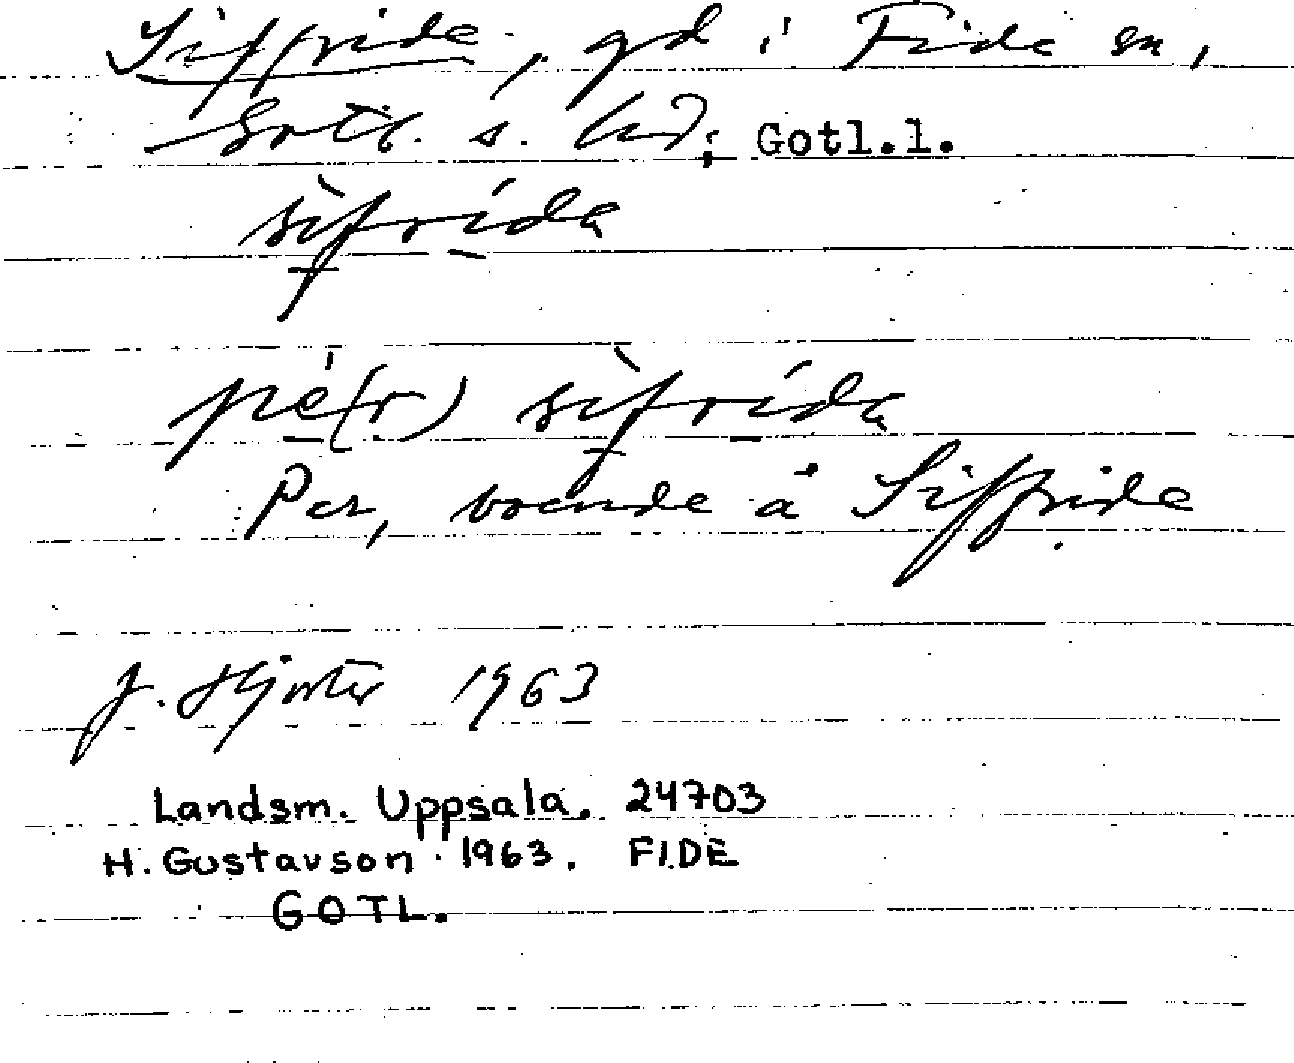 Siffride, gd i Fide sn,
Gotl. s. hd; Gotl.l.
sìfrída
pé(r) sìfrída
Per, boende å Siffride
J. 1963
Landsm. Uppsala. 24703
H. Gustavson 1963. FIDE
GOTL.